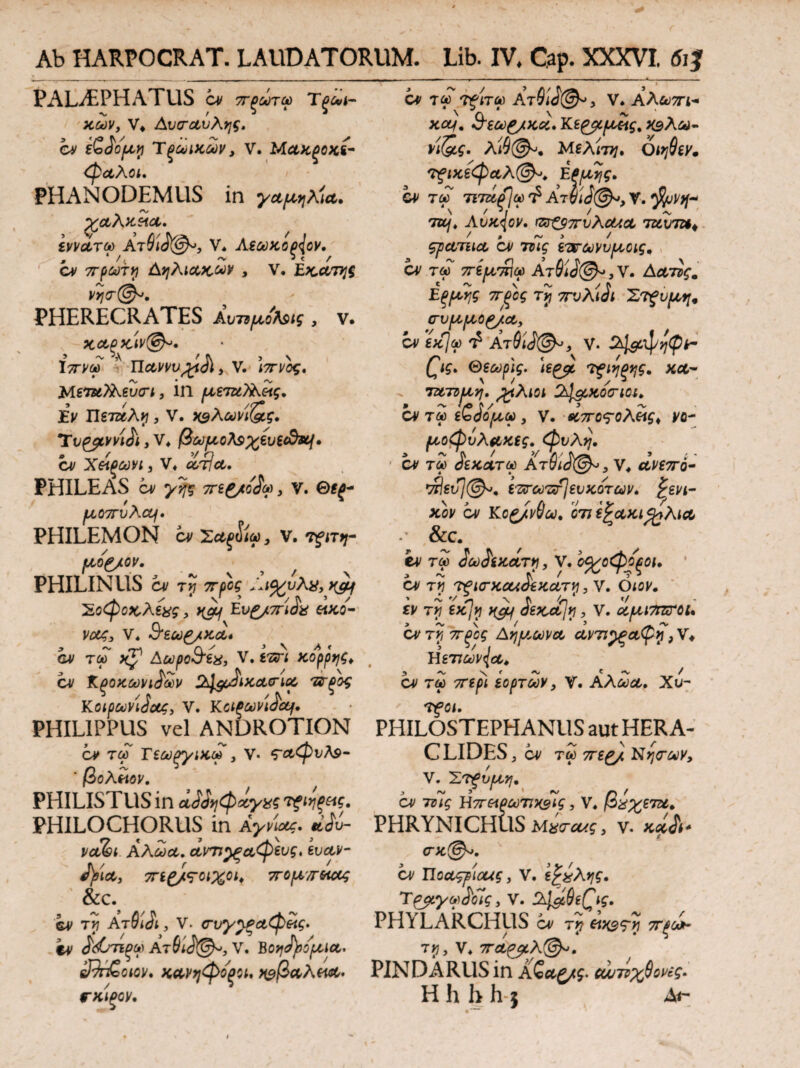 Ab HARPOCRAT. LAUDATORUM. Lib. IV. Cap. XXXVI. 615
PALÆPHATUS ἐν πρώτῳ Τρωϊ-
κῶν, v. Δυσαύλης.
ἐν ἑβδόμῃ Τρωικῶν, v. Μακροκέ-
φαλοι.
PHANODEMUS in γαμηλία.
χαλκεῖα.
ἐννάτῳ Ἀτθίδος, v. Λεωκόριον.
ἐν πρώτῃ Δηλιακῶν, v. Ἑκάτης
νῆσος.
PHERECRATES Αὐτομόλοις, v.
καρκίνος.
Ἰπνῷ ἢ Παννυχίδι, v. ἰπνός.
Μεταλλεῦσι, in μεταλλεῖς.
Ἐν Πετάλῃ, v. κολωνίτας.
Τυραννίδι, v. βωμολοχεύεσθαι.
ἐν Χείρωνι, v. ἄττα.
PHILEAS ἐν γῆς περιόδῳ, v. Θερ-
μοπύλαι.
PHILEMON ἐν Σαρδίῳ, v. τριτη-
μόριον.
PHILINUS ἐν τῇ πρὸς Αἰσχύλου, καὶ
Σοφοκλέους, καὶ Εὐριπίδου εἰκό-
νας, v. θεωρικά.
ἐν τῷ κατὰ Δωροθέου, v. ἐπὶ κόρρης.
ἐν Κροκωνιδῶν διαδικασίᾳ πρὸς
Κοιρωνίδας, v. Κοιρωνίδαι.
PHILIPPUS vel ANDROTION
ἐν τῷ Γεωργικῷ, v. σταφυλο-
βολεῖον.
PHILISTUS in ἀδδηφάγους τριήρεις.
PHILOCHORUS in Ἀγυίας. ἀδύ-
νατοι Ἁλῶα. ἀντιγραφεύς. εὐαν-
δρία, περίστοιχοι, πομπείας
&c.
ἐν τῇ Ἀτθίδι, v. συγγραφεῖς.
ἐν δευτέρῳ Ἀτθίδος, v. Βοηδρόμια.
ἐπίβοιον. κανηφόροι. κοβαλεία.
σκίρον.
ἐν τῷ τρίτῳ Ἀτθίδος, v. Ἀλωπε-
καί. θεωρικά. Κεραμεῖς. κολω-
νίτας. λίθος. Μελίτη. Οἴηθεν.
τρικέφαλος. Ἑρμῆς.
ἐν τῷ τετάρτῳ τῆς Ἀτθίδος, v. γεννῆ-
ται. Λύκειον. προπύλαια ταῦτα.
στρατεία ἐν τοῖς ἐπωνύμοις.
ἐν τῷ πέμπτῳ Ἀτθίδος, v. Δατός.
Ἑρμῆς πρὸς τῇ πυλίδι Στρύμη.
συμμορία,
ἐν ἕκτῳ τῆς Ἀτθίδος, v. Διαψήφι-
σις. Θεωρίς. ἱερὰ τριήρης. κα-
τατομή. χίλιοι διακόσιοι.
ἐν τῷ ἑβδόμῳ, v. ἀποστολεῖς. νο-
μοφύλακες. φυλή.
ἐν τῷ δεκάτῳ Ἀτθίδος, v. ἀνεπό-
πτευτος. ἐπωπτευκότων. ξενι-
κὸν ἐν Κορίνθῳ. ὅτι ἑξακισχίλια
&c.
ἐν τῷ δωδεκάτῃ, v. ὀσχοφόροι.
ἐν τῇ τρισκαιδεκάτῃ, v. Οἷον.
ἐν τῇ ἕκτῃ καὶ δεκάτῃ, v. ἄμιπποι.
ἐν τῇ πρὸς Δήμωνα ἀντιγραφῇ, v.
Ἠετιώνεια.
ἐν τῷ περὶ ἑορτῶν, v. Ἁλῶα. Χύ-
τροι.
PHILOSTEPHANUS aut HERA-
CLIDES, ἐν τῷ περὶ Νήσων,
v. Στρύμη.
ἐν τοῖς Ἠπειρωτικοῖς, v. βούχετα.
PHRYNICHUS Μούσαις, v. καδί-
σκος.
ἐν Ποαστρίαις, v. ἐξούλης.
Τραγῳδοῖς, v. Διάθεσις.
PHYLARCHUS ἐν τῇ εἰκοστῇ πρώ-
τῃ, v. πάραλος.
PINDARUS in Ἄβαρις. αὐτόχθονες.
Hhhh 3 Ar-